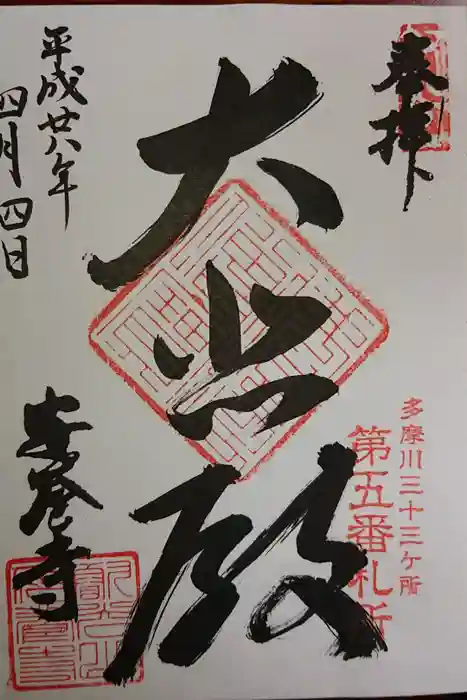 奉拝
多摩川三十三ケ所
第五番札所
大悲殿
安養寺
平成廿八年
四月四日